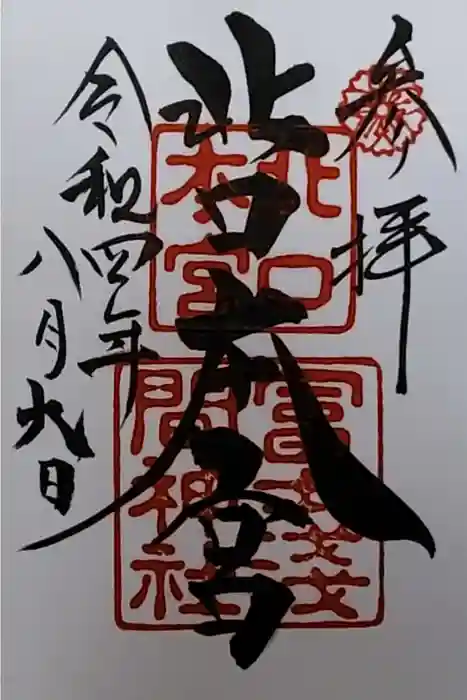 参拝
北口本宮
令和四年
八月九日
北口
本宮
冨士浅
間神社